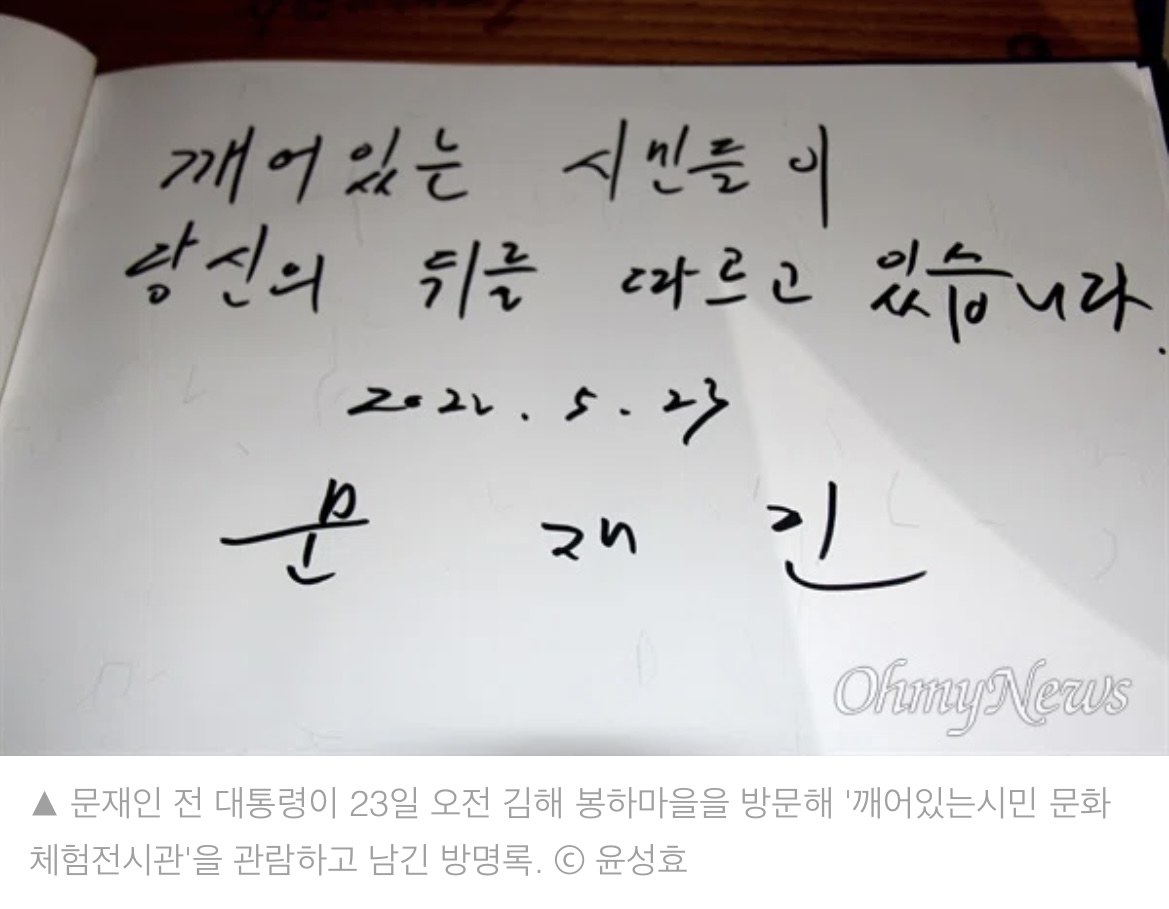 깨어있는 시민들이
당신의 뒤를 따르고 있습니다.
2022. 5. 23
문 재 인
OhmyNews
▲ 문재인 전 대통령이 23일 오전 김해 봉하마을을 방문해 '깨어있는시민 문화
체험전시관'을 관람하고 남긴 방명록. ⓒ 윤성효